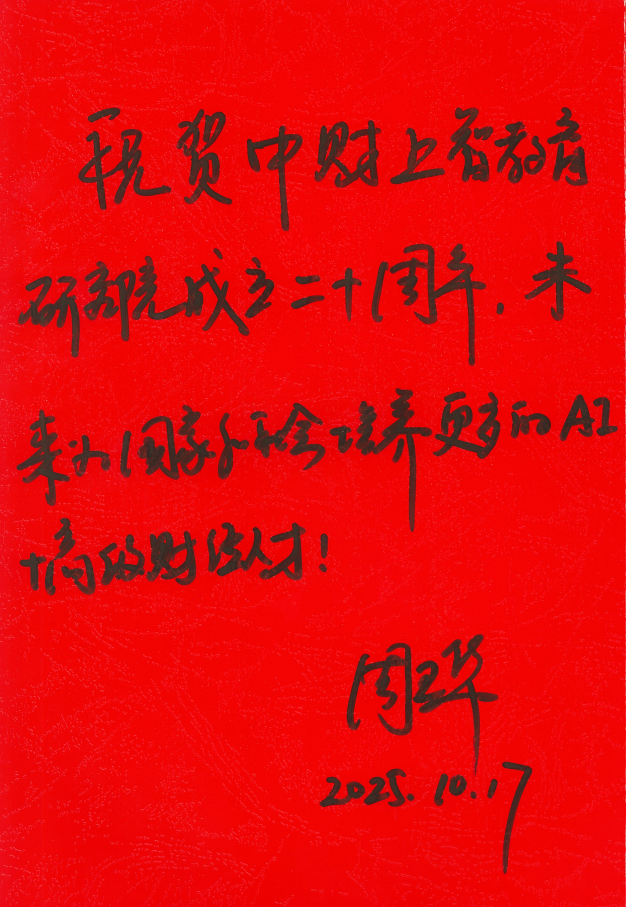 祝贺中财上智教育
研究院成立二十周年，未
来为国家和社会培养更多的AI
+高级财经人才！
周卫华
2025.10.17